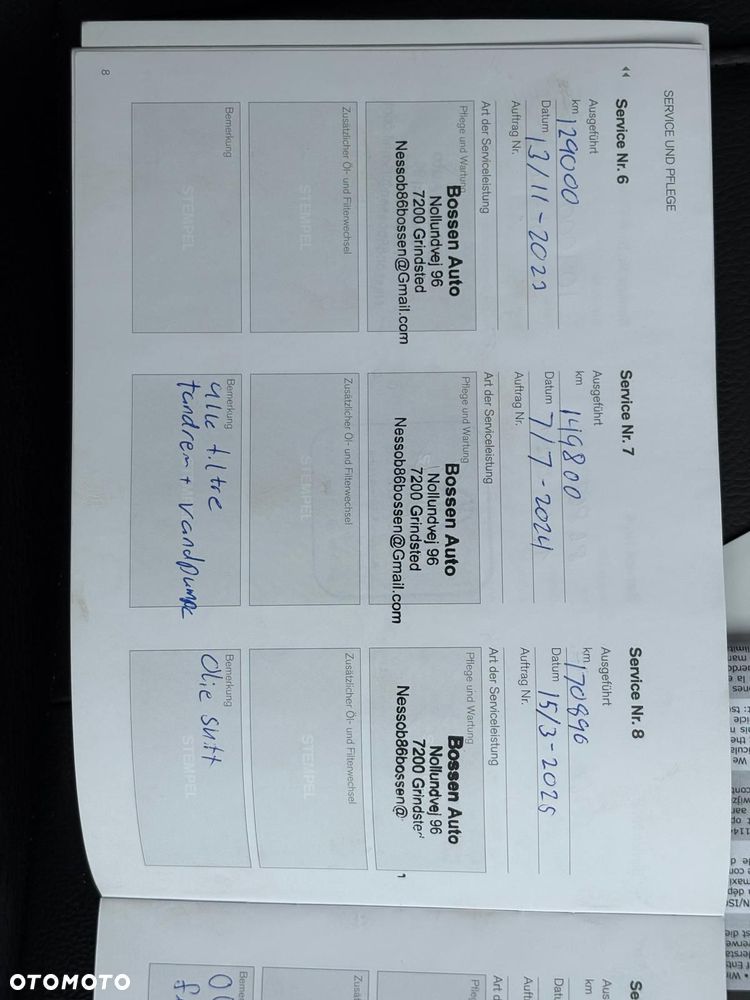 SERVICE UND PFLEGE
Service Nr. 6
Ausgeführt
km 129000
Datum 13/11-2023
Auftrag Nr.
Art der Serviceleistung
Pflege und Wartung
Bossen Auto
Nollundvej 96
7200 Grindsted
Nessob86bossen@Gmail.com
Zusätzlicher Öl- und Filterwechsel
STEMPEL
Bemerkung
STEMPEL
Service Nr. 7
Ausgeführt
km 149800
Datum 7/7-2024
Auftrag Nr.
Art der Serviceleistung
Pflege und Wartung
Bossen Auto
Nollundvej 96
7200 Grindsted
Nessob86bossen@Gmail.com
Zusätzlicher Öl- und Filterwechsel
STEMPEL
Bemerkung
alle filtre
tandrem + vandpumpe
Service Nr. 8
Ausgeführt
km 170896
Datum 15/3-2025
Auftrag Nr.
Art der Serviceleistung
Pflege und Wartung
Bossen Auto
Nollundvej 96
7200 Grindsted
Nessob86bossen@
Zusätzlicher Öl- und Filterwechsel
STEMPEL
Bemerkung
Olie skift
STEMPEL
8
OTOMOTO